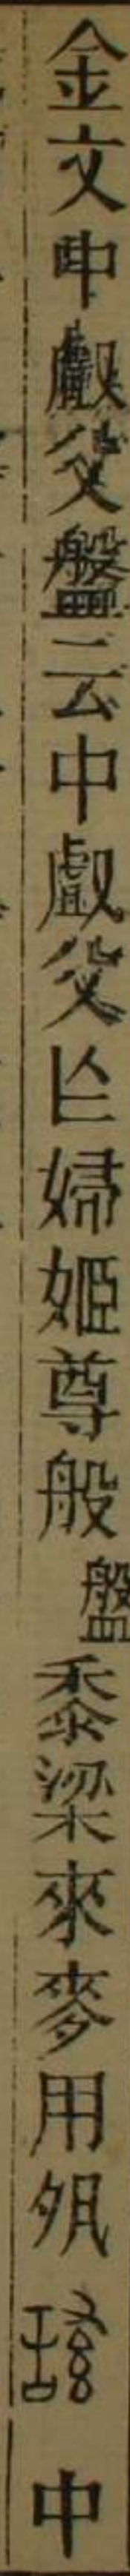 金文中𠭯父盤云中𠭯父亾婦姬尊般盤黍梁來麥用夙 中